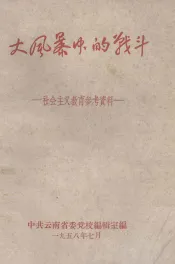 大风暴中的战斗
—社会主义教育参考资料—
中共云南省委党校编辑室编
一九五八年七月